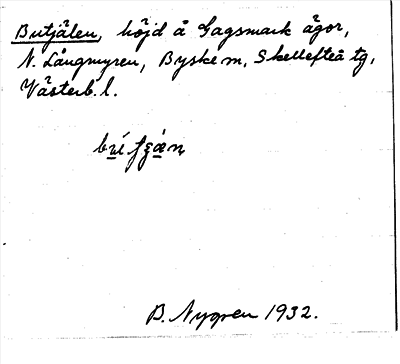 Butjälen, höjd å Gagsmark ägor,
N. Långmyren, Byske m, Skellefteå tg,
Västerb. l.
B. Nygren 1932.